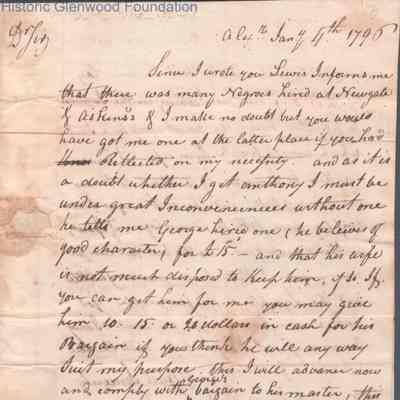 Historic Glenwood Foundation
Dr Sir
Alexa. Jany 4th 1796
Since I wrote you Lewis Informs me
that there was many Negroes hired at Newgate
& Askins's & I make no doubt but you would
have got me one at the latter place if you had
Reflected on my necessity and as it is
a doubt whether I get anthony I must be
under great Inconveniences without one
he tells me George hired one, he beleives of
good character, for £15 - and that his wife
is not much disposed to keep him, if so If
You can get him for me you may give
him 10. 15. or 20 dollars in cash for his
Bargain if you think he will any way
Suit my purpose this I will advance now
and comply with George's bargain to his master, this